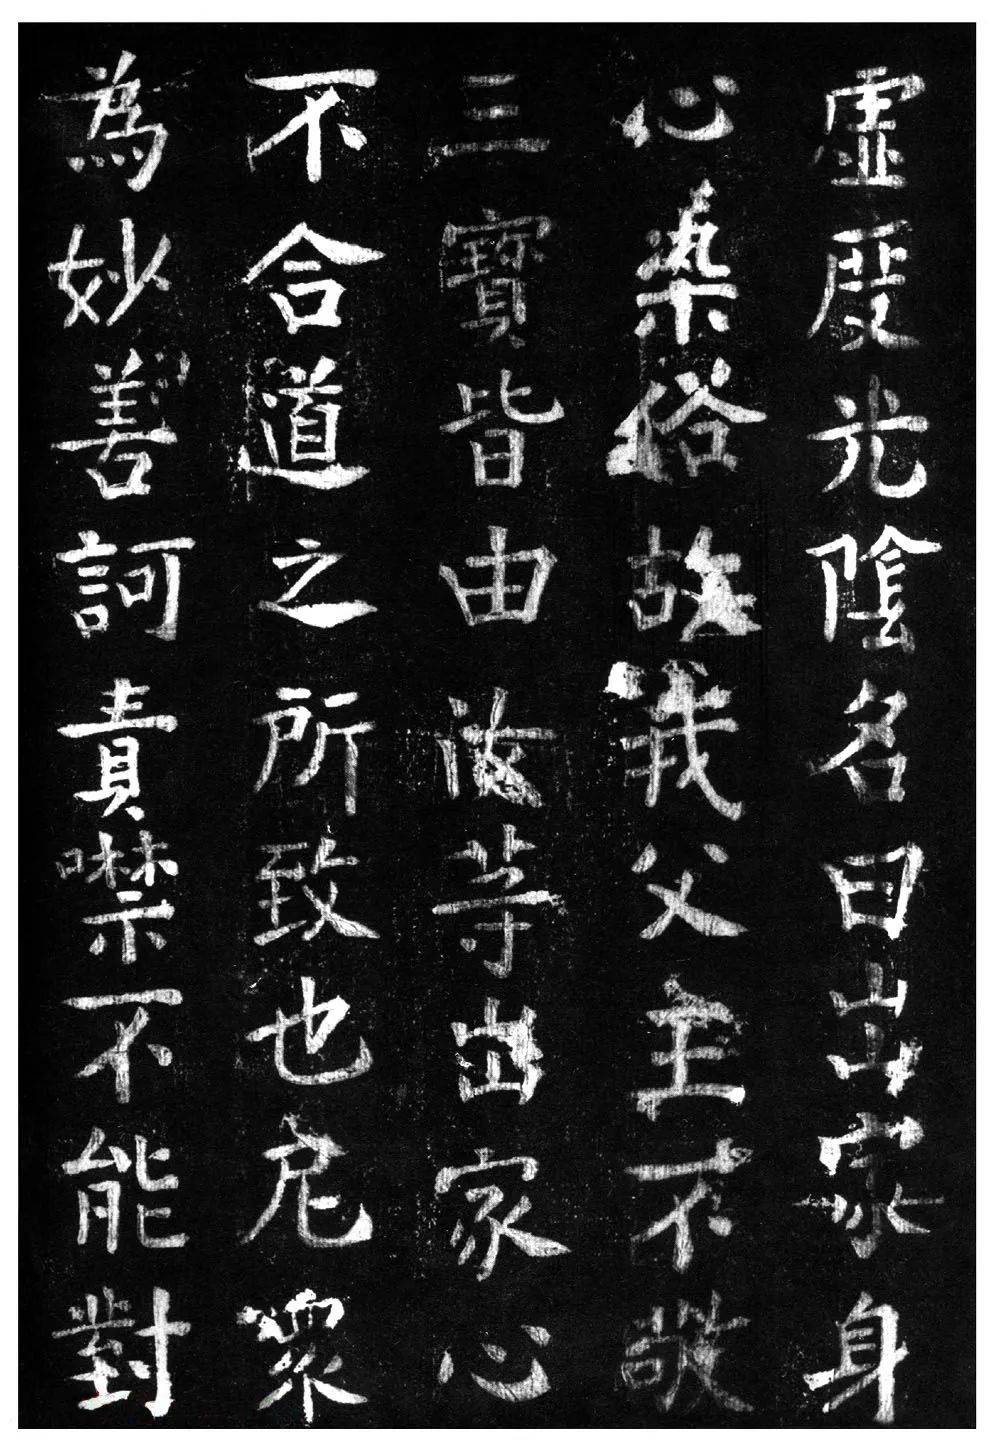 虛度光陰名曰出家身
心染俗故我父主不敬
三寶皆由汝等出家心
不合道之所致也尼眾
為妙善訶責禁不能對